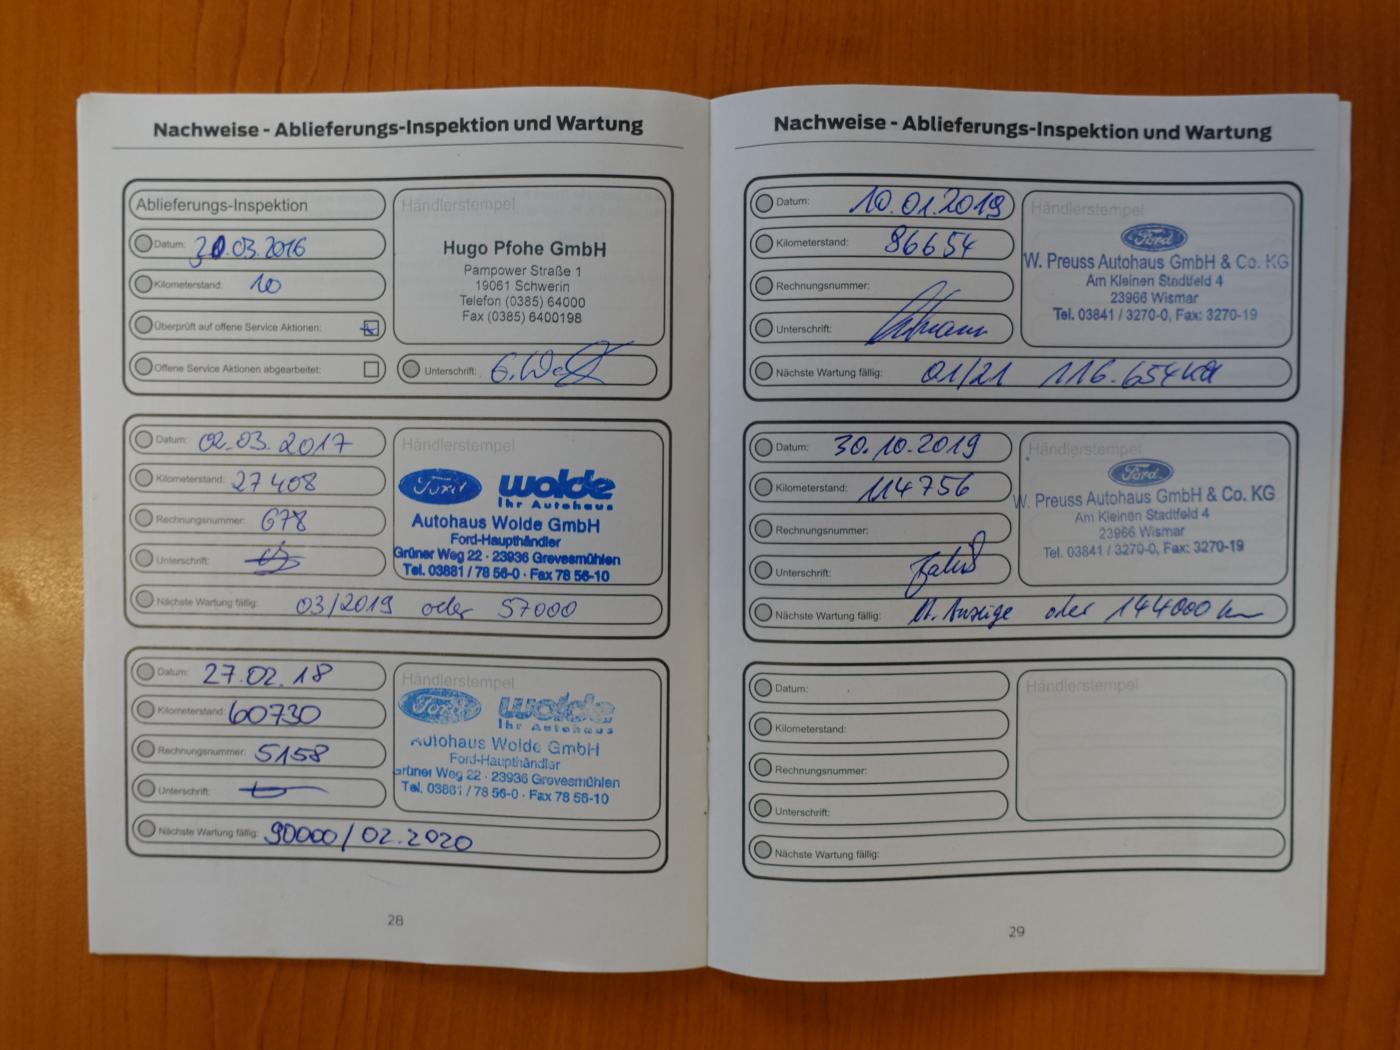 Nachweise - Ablieferungs-Inspektion und Wartung
Ablieferungs-Inspektion
Datum: 30.03.2016
Kilometerstand: 10
Überprüft auf offene Service Aktionen:
Offene Service Aktionen abgearbeitet:
Händlerstempel
Hugo Pfohe GmbH
Pampower Straße 1
19061 Schwerin
Telefon (0385) 64000
Fax (0385) 6400198
Unterschrift:
Datum: 02.03.2017
Kilometerstand: 27408
Rechnungsnummer: 678
Unterschrift:
Händlerstempel
Ford wolde
Ihr Autohaus
Autohaus Wolde GmbH
Ford-Haupthändler
Grüner Weg 22 · 23936 Grevesmühlen
Tel. 03881 / 78 56-0 · Fax 78 56-10
Nächste Wartung fällig: 03/2019 oder 57000
Datum: 27.02.18
Kilometerstand: 60730
Rechnungsnummer: 5158
Unterschrift:
Händlerstempel
Ford wolde
Ihr Autohaus
Autohaus Wolde GmbH
Ford-Haupthändler
Grüner Weg 22 · 23936 Grevesmühlen
Tel. 03881 / 78 56-0 · Fax 78 56-10
Nächste Wartung fällig: 90000/02.2020
28
Nachweise - Ablieferungs-Inspektion und Wartung
Datum: 10.01.2019
Kilometerstand: 86654
Rechnungsnummer:
Unterschrift:
Händlerstempel
Ford
W. Preuss Autohaus GmbH & Co. KG
Am Kleinen Stadtfeld 4
23966 Wismar
Tel. 03841 / 3270-0, Fax: 3270-19
Nächste Wartung fällig: 01/21 116.654 KM
Datum: 30.10.2019
Kilometerstand: 114756
Rechnungsnummer:
Unterschrift:
Händlerstempel
Ford
W. Preuss Autohaus GmbH & Co. KG
Am Kleinen Stadtfeld 4
23966 Wismar
Tel. 03841 / 3270-0, Fax: 3270-19
Nächste Wartung fällig: lt. Anzeige oder 144000 km
Datum:
Kilometerstand:
Rechnungsnummer:
Unterschrift:
Händlerstempel
Nächste Wartung fällig:
29